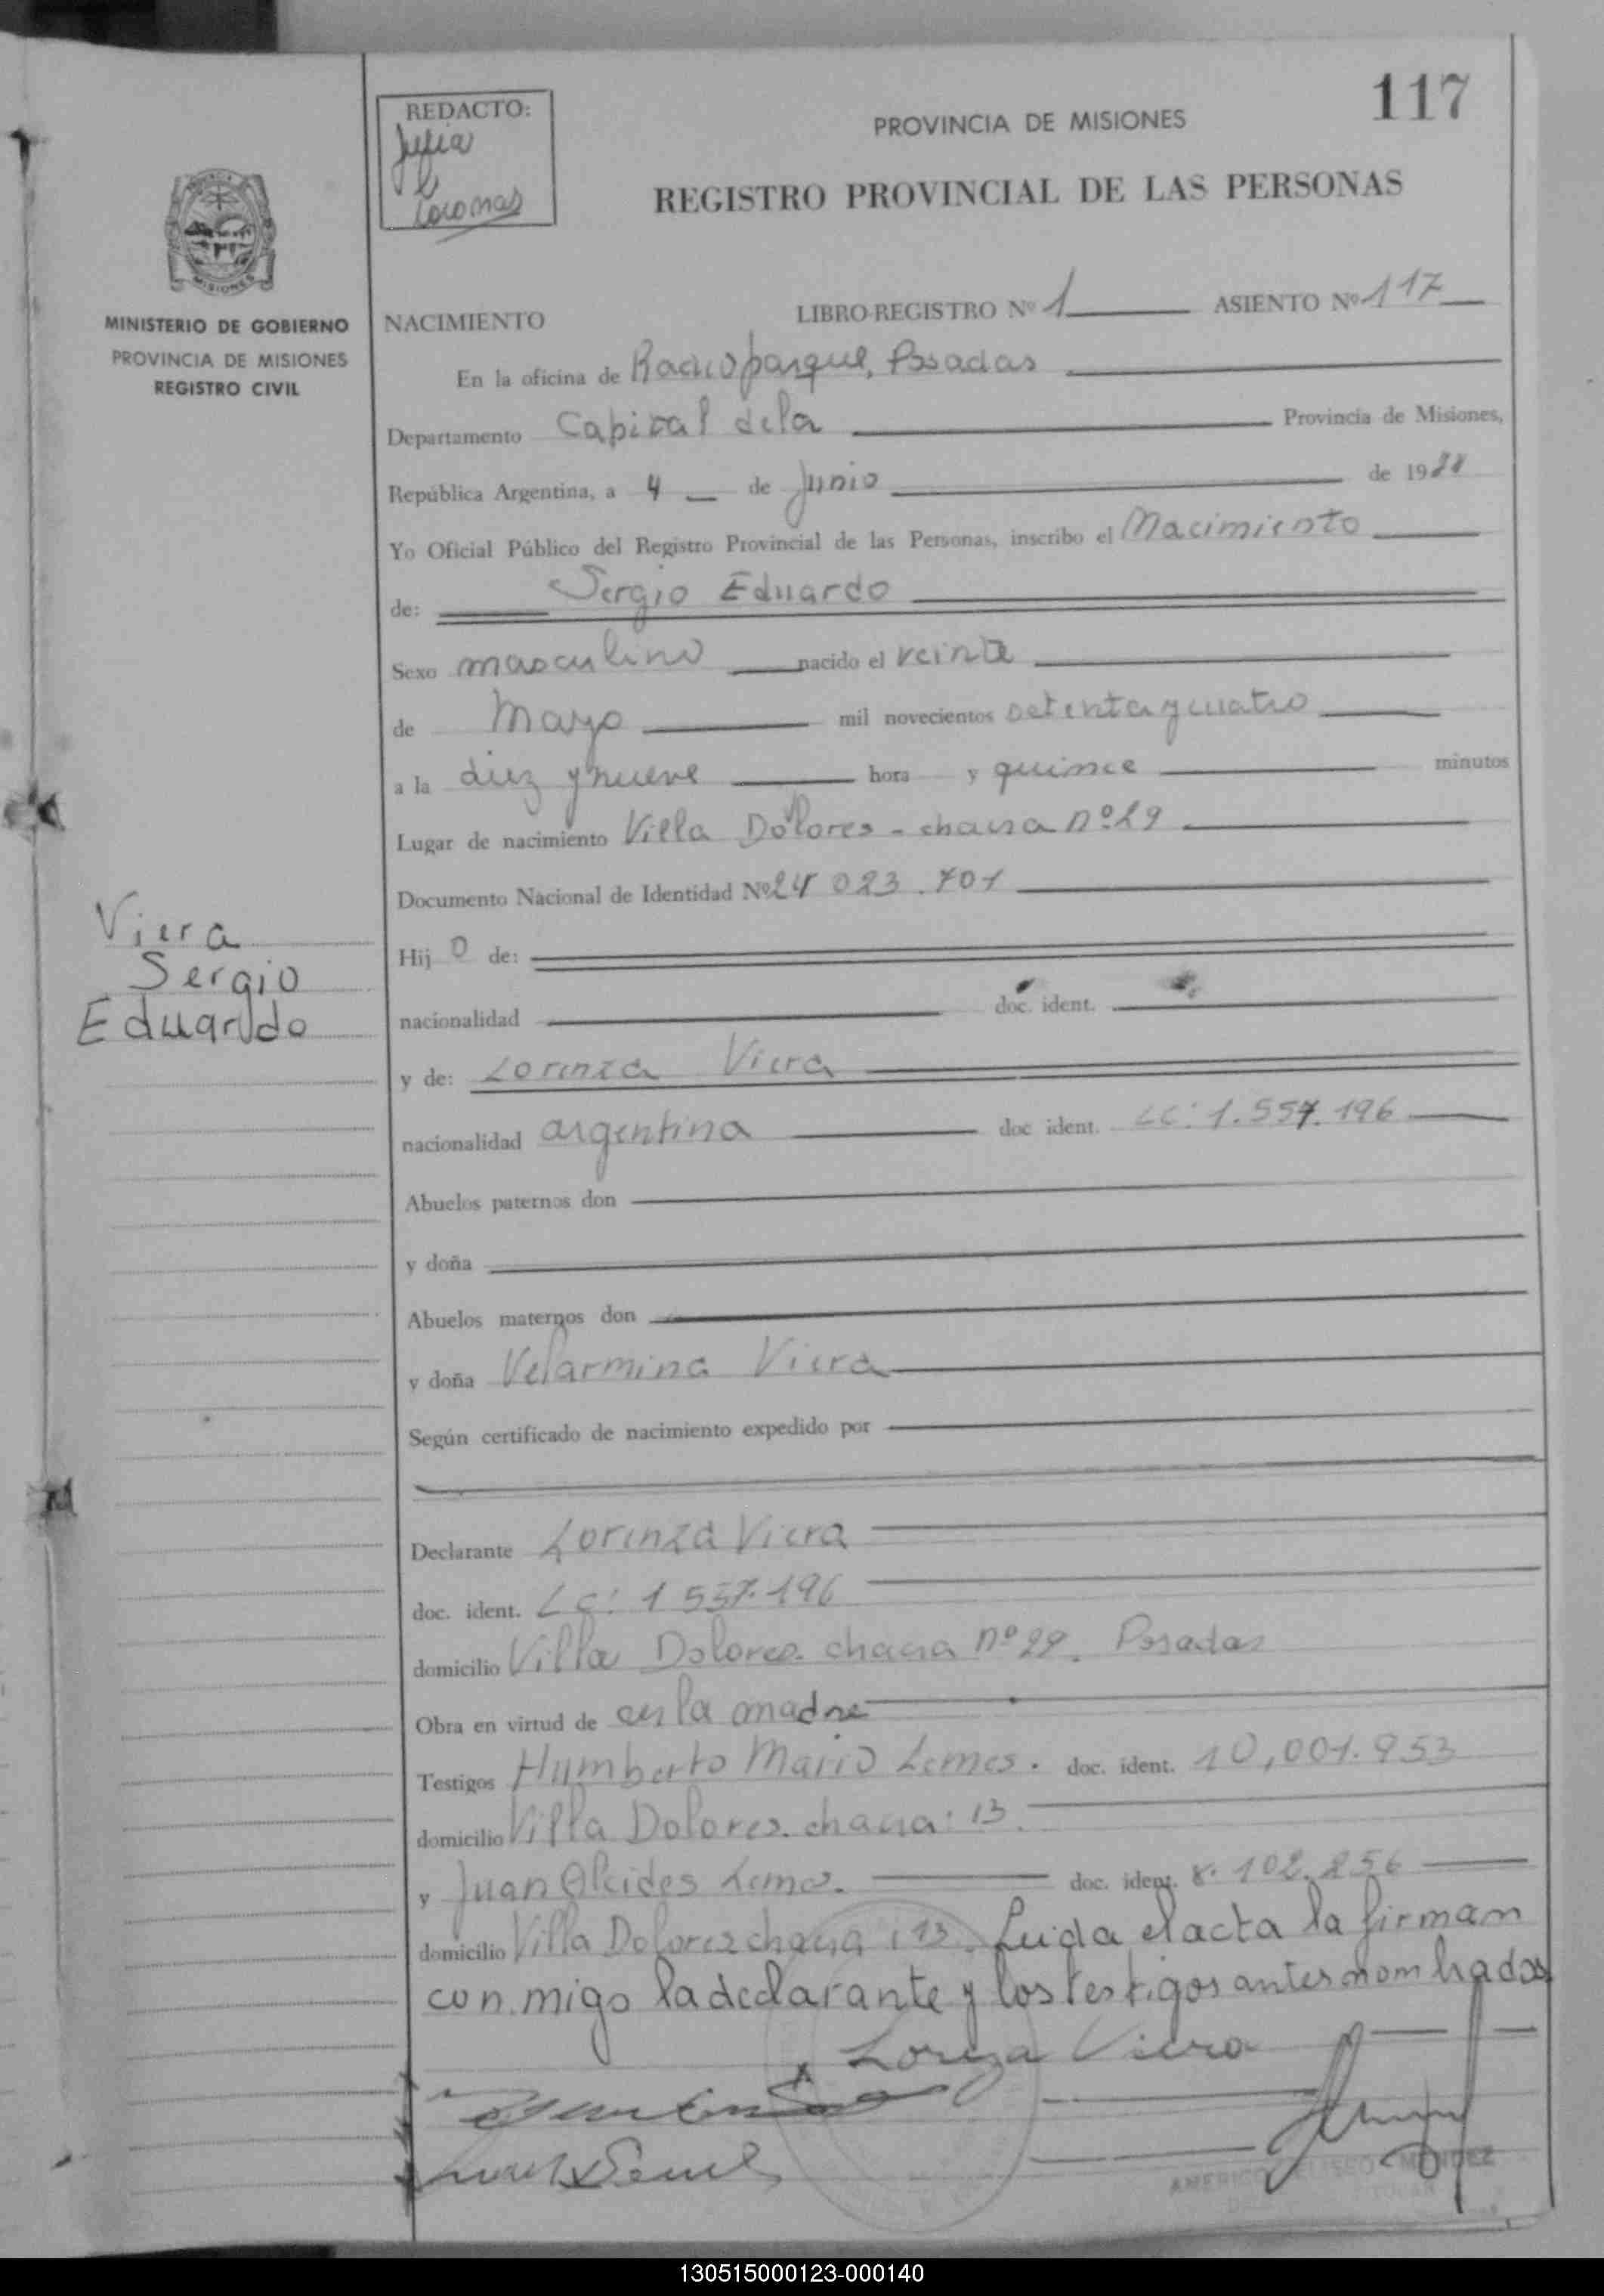 117
REDACTO:
PROVINCIA DE MISIONES
REGISTRO PROVINCIAL DE LAS PERSONAS
MISIONES
MINISTERIO DE GOBIERNO
PROVINCIA DE MISIONES
REGISTRO CIVIL
NACIMIENTO LIBRO-REGISTRO Nº 1 ASIENTO Nº 117
En la oficina de Posadas
Departamento Capital de la Provincia de Misiones,
República Argentina, a 4 de Junio de 19
Yo Oficial Público del Registro Provincial de las Personas, inscribo el Nacimiento
de: Sergio Eduardo
Sexo masculino nacido el veinte
de Mayo mil novecientos setenta y cuatro
a la diez y nueve hora y quince minutos
Lugar de nacimiento Villa Dolores - chacra nº 29
Documento Nacional de Identidad Nº 24 023.701
Viera
Sergio
Eduardo
Hij o de:
nacionalidad doc. ident.
y de: Lorenza Viera
nacionalidad argentina doc ident. LC: 1.557.196
Abuelos paternos don
y doña
Abuelos maternos don
y doña Velarmina Viera
Según certificado de nacimiento expedido por
Declarante Lorenza Viera
doc. ident. LC: 1 557.196
domicilio Villa Dolores. chacra nº 29. Posadas
Obra en virtud de la madre
Testigos Humberto Mario Lemes. doc. ident. 10,001.953
domicilio Villa Dolores. chacra: 13.
y Juan Alcides doc. ident. 8.102.256
domicilio Villa Dolores chacra: 13. Leida el acta la firman
con migo la declarante y los testigos antes nombrados
Lorenza Viera
MENDEZ
130515000123-000140